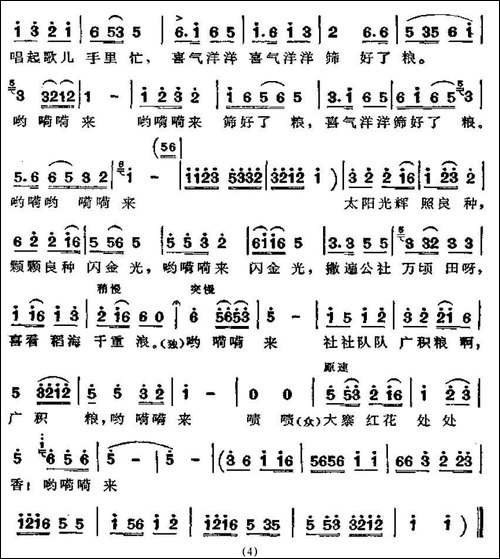 i 3 2 i | 6 53 5 | 3. i 6 5 | 3. i 6 5 | 2 6.6 | 5 35 6 i |
唱起歌儿 手里 忙, 喜气洋洋 喜气洋洋 筛 好了 粮。
3 3212 | 1 - | i 2 3 2 | i 6 5 6 5 | 3. i 6 5 | 6 i 6 5 |
哟 嗬嗬 来 哟嗬嗬来 筛好了 粮, 喜气洋洋筛好了 粮。
(56
5.6 6 5 3 2 | i - | i i23 53 32 | 3212 i ) | 3 2 2 i6 | 3 2 3 |
哟嗬哟 嗬嗬 来 太阳光辉 照良 种,
6 2 2 i6 | 5 56 5 | 5 5 3 2 | 6 i i6 5 | 3.3 5 5 | 3 32 3 3 |
颗颗良种 闪金 光, 哟嗬嗬来 闪金 光, 撒遍公社 万顷 田呀,
稍慢 突慢
i i6 i 3 | 2 i6 6 0 | 6 5653 | 5 - | 5. i 2 i | 3 2 2 i 6 |
喜看 稻海 千重 浪。(独)哟 嗬嗬 来 社社队队 广积粮 啊,
原速
5 3212 | 5 5 3 2 | i - | 0 0 | 5 53 2 i6 | i 2 3 |
广 积 粮, 哟嗬嗬来 啧 啧(众)大寨 红花 处处
5 6 5 6 | 5 - | 5 - | (3 6 i i6 | 5656 i i | 66 3 2 23 |
香! 哟嗬嗬 来
i2i6 5 5 | i 56 i 2 | i2i6 5 35 | 5 53 3212 | i i ) ‖
(4)